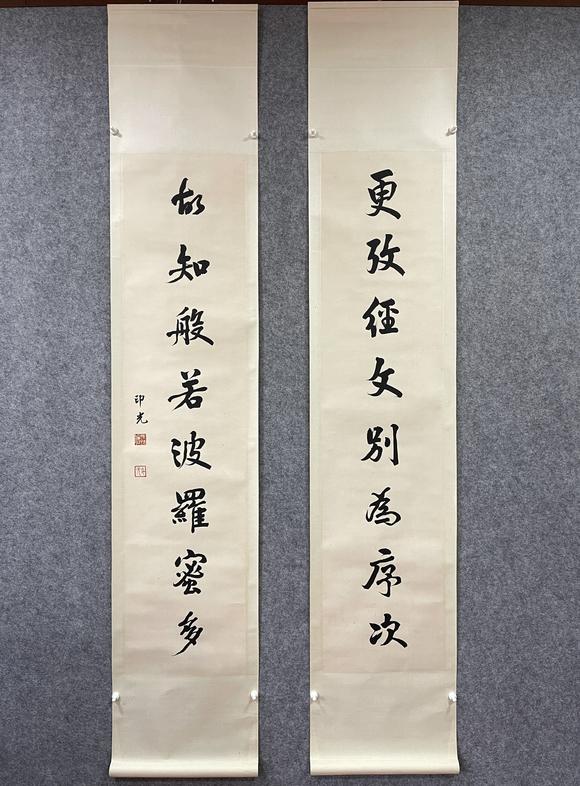 更攷經文別為序次
故知般若波羅蜜多
印光